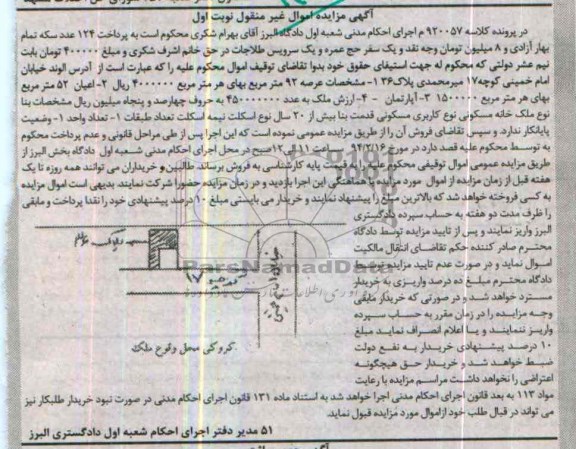 آگهی مزایده اموال غیر منقول نوبت اول
در پرونده کلاسه ۹۲۰۰۵۷ م اجرای احکام مدنی شعبه اول دادگاه البرز آقای بهرام شکری محکوم است به پرداخت ۱۲۴ عدد سکه تمام
بهار آزادی و ۸ میلیون تومان وجه نقد و یک سفر حج عمره و یک سرویس طلاجات در حق خانم اشرف شکری و مبلغ ۴۰۰۰۰۰ تومان بابت
نیم عشر دولتی که محکوم له جهت استیفای حقوق خود بدوا تقاضای توقیف اموال محکوم علیه را که عبارت است از آدرس الوند خیابان
امام خمینی کوچه۱۷ میرمحمدی پلاک۳۶ ۱- مشخصات عرصه ۹۲ متر مربع بهای هر متر مربع ۴۰۰۰۰۰۰ ریال ۲- اعیان ۵۲ متر مربع
بهای هر متر مربع ۱۵۰۰۰۰۰ ۳- آپارتمان - ۴- ارزش ملک به عدد ۴۵۰۰۰۰۰۰۰ به حروف چهارصد و پنجاه میلیون ریال مشخصات بنا
نوع ملک خانه مسکونی نوع کاربری مسکونی قدمت بنا بیش از ۲۰ سال نوع اسکلت نیمه اسکلت تعداد طبقات ۱- تعداد واحد ۱- وضعیت
پایانکار ندارد. و سپس تقاضای فروش آن را از طریق مزایده عمومی نموده است که این اجرا پس از طی مراحل قانونی و عدم پرداخت محکوم
به توسط محکوم علیه قصد دارد در مورخ ۹۴/۲/۱۶ ساعت ۱۱ الی ۱۲صبح در محل اجرای احکام مدنی شعبه اول دادگاه بخش البرز از
طریق مزایده عمومی اموال توقیفی محکوم علیه را به قیمت پایه کارشناسی به فروش برساند. طالبین و خریداران می توانند همه روزه تا یک
هفته قبل از زمان مزایده از اموال مورد مزایده با هماهنگی این اجرا بازدید و در زمان مزایده حضورا شرکت نمایند. بدیهی است اموال مزایده
به کسی فروخته خواهد شد که بالاترین مبلغ را پیشنهاد نمایند و خریدار می بایستی مبلغ ۱۰ درصد پیشنهادی خود را نقدا پرداخت و مابقی
را ظرف مدت دو هفته به حساب سپرده دادگستری
البرز واریز نمایند و پس از تایید مزایده توسط دادگاه
محترم صادر کننده حکم تقاضای انتقال مالکیت
اموال نماید و در صورت عدم تایید مزایده توسط
دادگاه محترم مبلغ ده درصد واریزی به خریدار
مسترد خواهد شد و در صورتی که خریدار مابقی
وجه مزایده را در زمان مقرر به حساب سپرده
واریز ننمایند و یا اعلام انصراف نماید مبلغ
۱۰ درصد پیشنهادی خریدار به نفع دولت
ضبط خواهد شد و خریدار حق هیچگونه
اعتراضی را نخواهد داشت مراسم مزایده با رعایت
مواد ۱۱۳ به بعد قانون اجرای احکام مدنی اجرا خواهد شد به استناد ماده ۱۳۱ قانون اجرای احکام مدنی در صورت نبود خریدار طلبکار نیز
می تواند در قبال طلب خود از اموال مورد مزایده قبول نماید.
۵۱ مدیر دفتر اجرای احکام شعبه اول دادگستری البرز
کروکی محل وقوع ملک
ParsNamadData